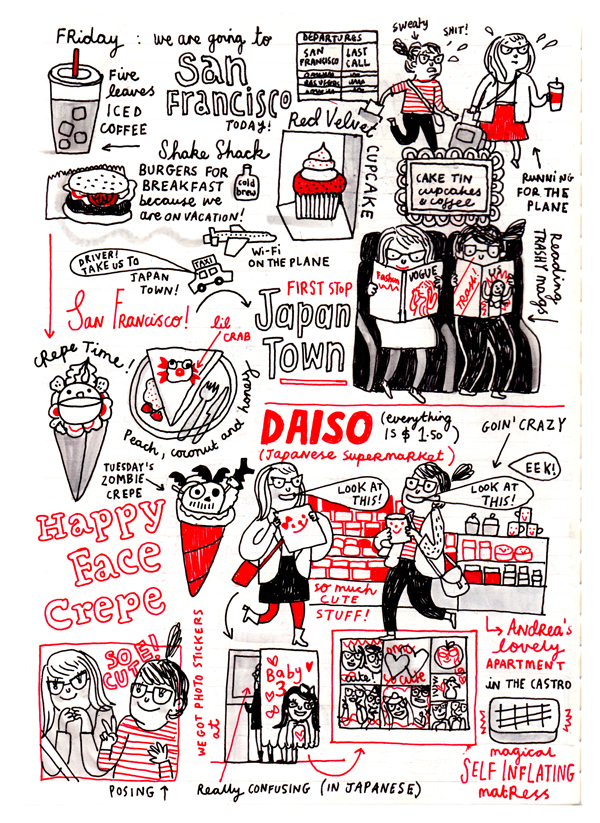 Friday : we are going to
San
Francisco
TODAY!
Five
leaves
ICED
COFFEE
DEPARTURES
SAN
FRANCISCO
LAST
CALL
Sweaty
SHIT!
RUNNING
FOR THE
PLANE
Shake Shack
BURGERS FOR
BREAKFAST
because we
are ON VACATION!
cold
brew
Red Velvet
CUPCAKE
CAKE TIN
cupcakes
& coffee
Reading
TRASHY mags!
Fashion
VOGUE
Trash!
US
Wi-Fi
ON THE PLANE
DRIVER!
TAKE US TO
JAPAN
TOWN!
TAXI
San Francisco!
FIRST STOP
Japan
Town
lil
CRAB
Crepe Time!
Peach, coconut and honey
TUESDAY'S
ZOMBIE
CREPE
Happy
Face
Crepe
DAISO
(everything
IS $1.50)
(Japanese Supermarket)
GOIN' CRAZY
EEK!
LOOK AT
THIS!
LOOK AT
THIS!
SO much
CUTE
STUFF!
SO
CUTE!
POSING
WE GOT PHOTO STICKERS
at
Baby
3
so cute
cute!
Really CONFUSING (IN JAPANESE)
Andrea's
lovely
APARTMENT
in THE CASTRO
magical
SELF INFLATING
matress